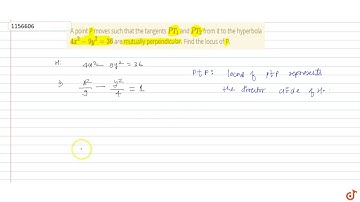 1156606
A point P moves such that the tangents PT₁ and PT₂ from it to the hyperbola
4x² − 9y² = 36 are mutually perpendicular. Find the locus of P.
H: 4x² − 9y² = 36
⇒ x²/9 − y²/4 = 1
Pt P: locus of pt P represents
the director circle of H.